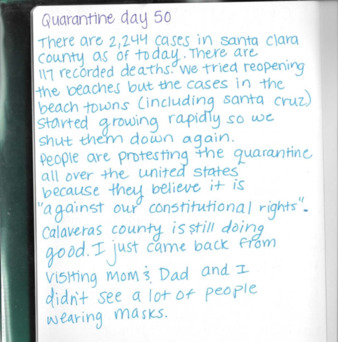 Quarantine day 50
There are 2,244 cases in santa clara
county as of today. There are
117 recorded deaths. We tried reopening
the beaches but the cases in the
beach towns (including santa cruz)
started growing rapidly so we
shut them down again.
People are protesting the quarantine
all over the united states
because they believe it is
"against our constitutional rights".
Calaveras county is still doing
good. I just came back from
visiting mom & Dad and I
didn't see a lot of people
wearing masks.